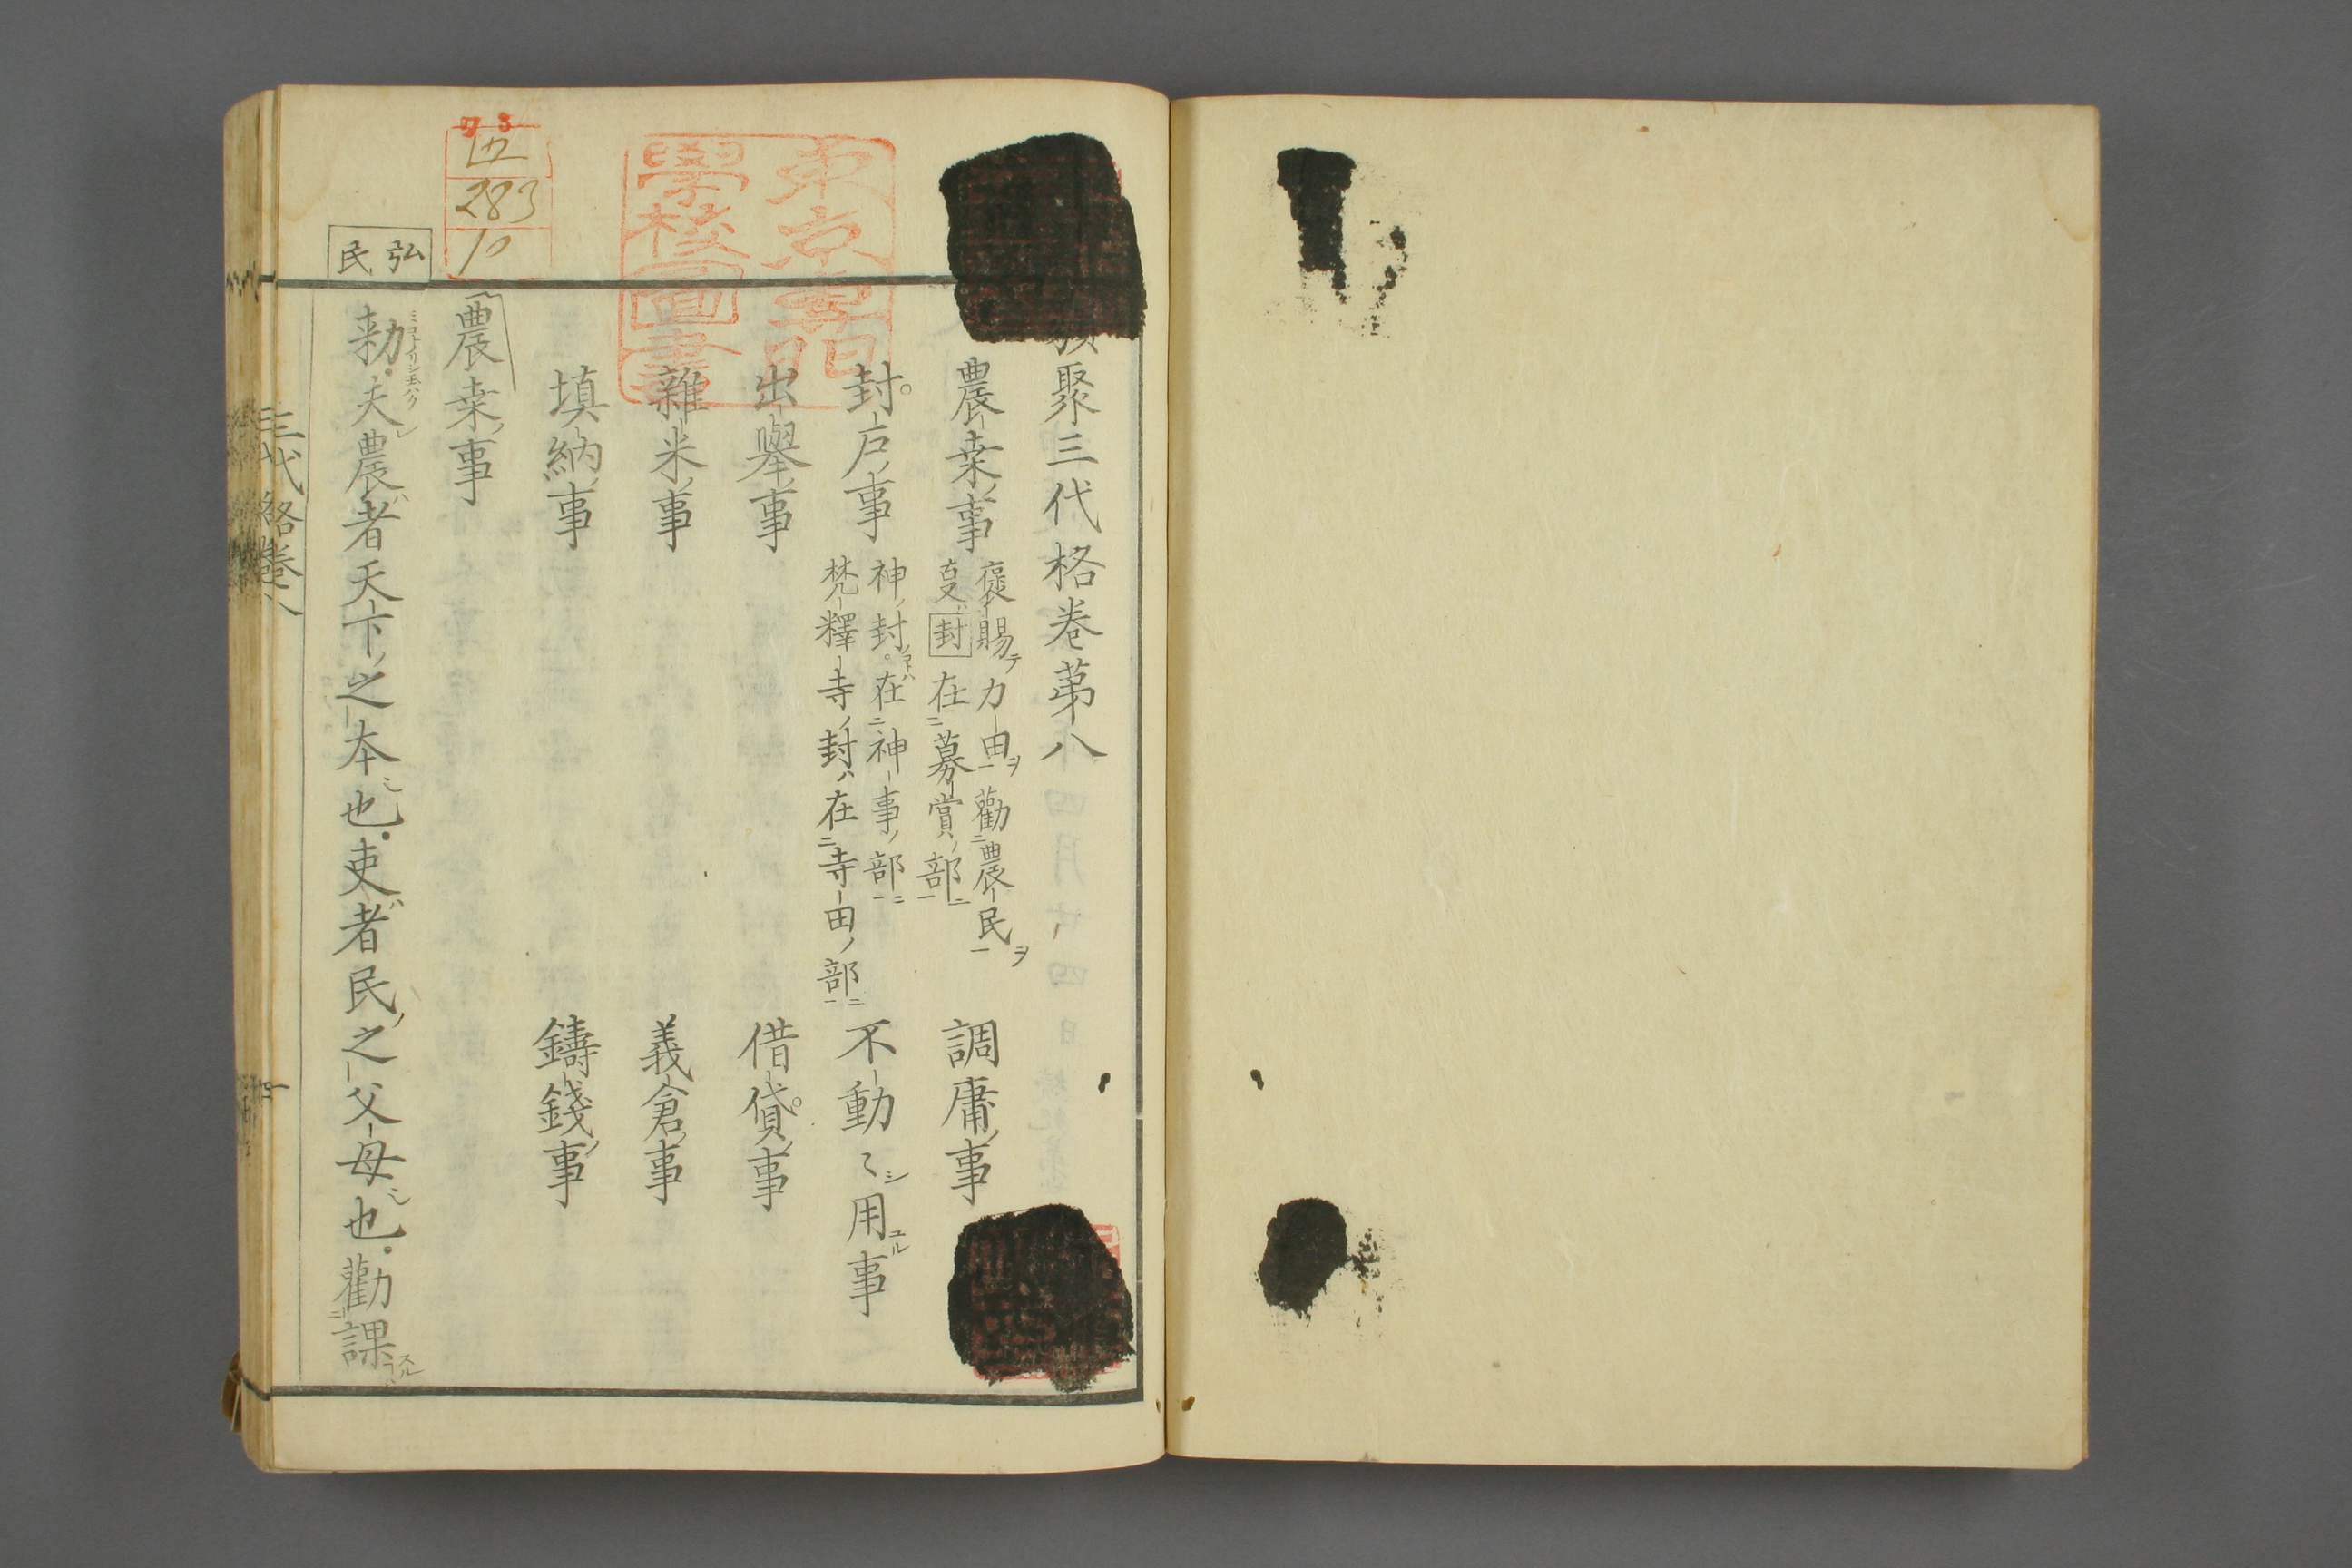 聚三代格卷苐八
農桒事 褒賜力田勸農民 調庸事
封在募賞部
封戸事 神封在神事部 不動〻用事
梵釋寺封在寺田部
出舉事 借貸事
雜米事 義倉事
填納事 鑄錢事
農桒事
弘民
勑夫農者天下之本也吏者民之父母也勸課
三代格卷八
東京專門
學校圖書
283
10